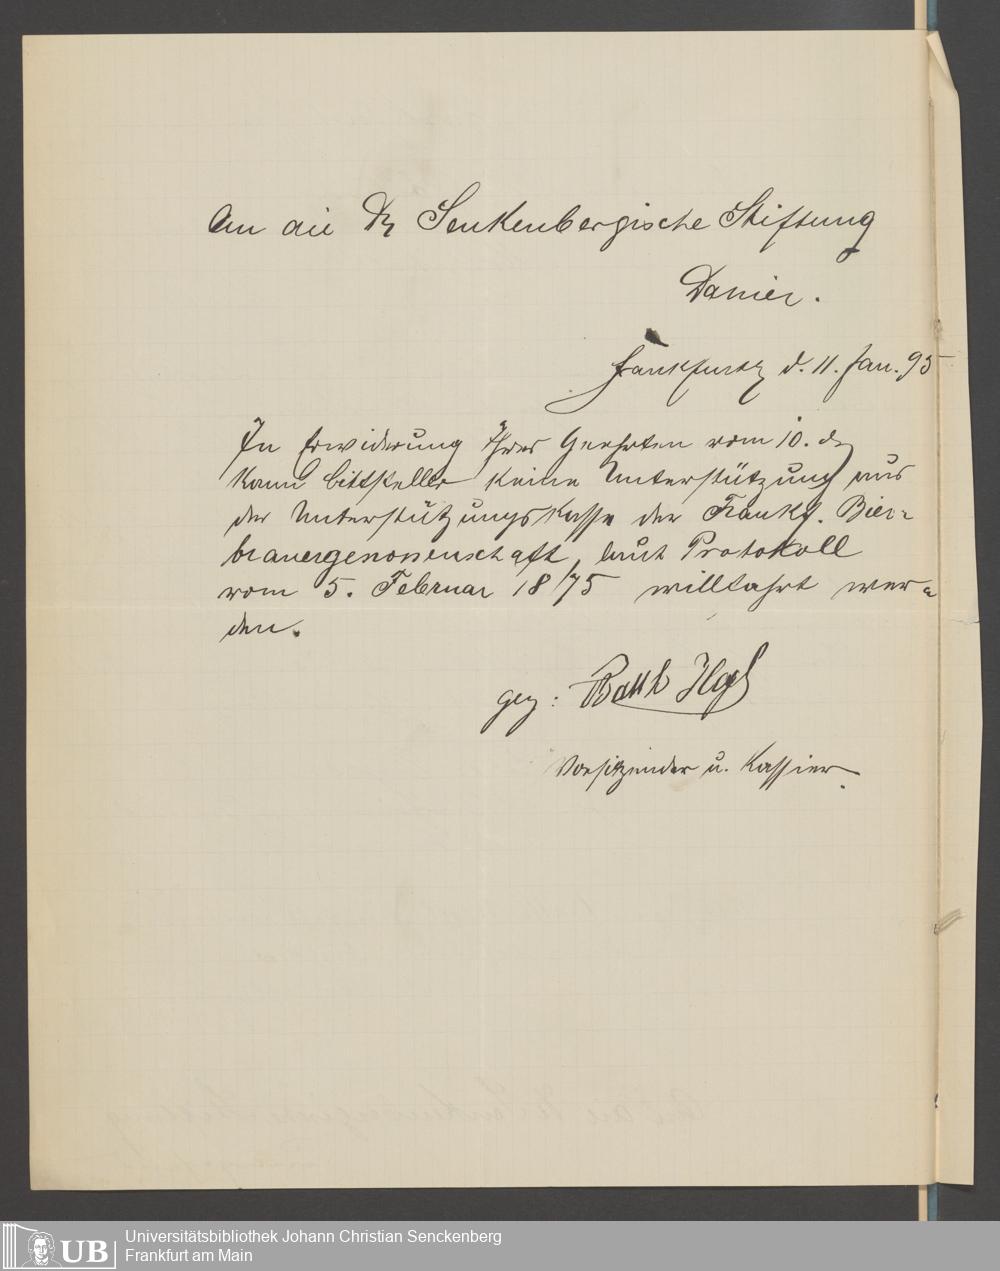 An die Dr Senkenbergische Stiftung
Dahier.
Frankfurt d. 11. Jan. 95
In Erwiderung Ihres Geehrten vom 10. ds
kann Bittsteller keine Unterstützung aus
der Unterstützungskasse der Frankf. Bier-
brauergenossenschaft, laut Protokoll
vom 5. Februar 1875 willfahrt wer-
den.
gez:
Vorsitzender u. Kassier.
UB
Universitätsbibliothek Johann Christian Senckenberg
Frankfurt am Main